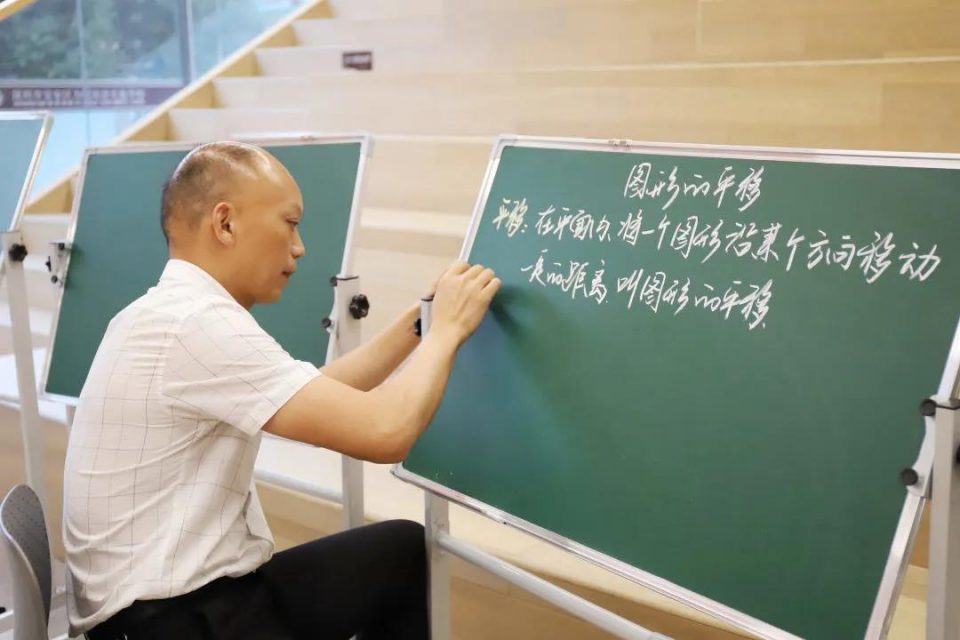 图形的平移
平移:在平面内,将一个图形沿某个方向移动
一定的距离,叫图形的平移.